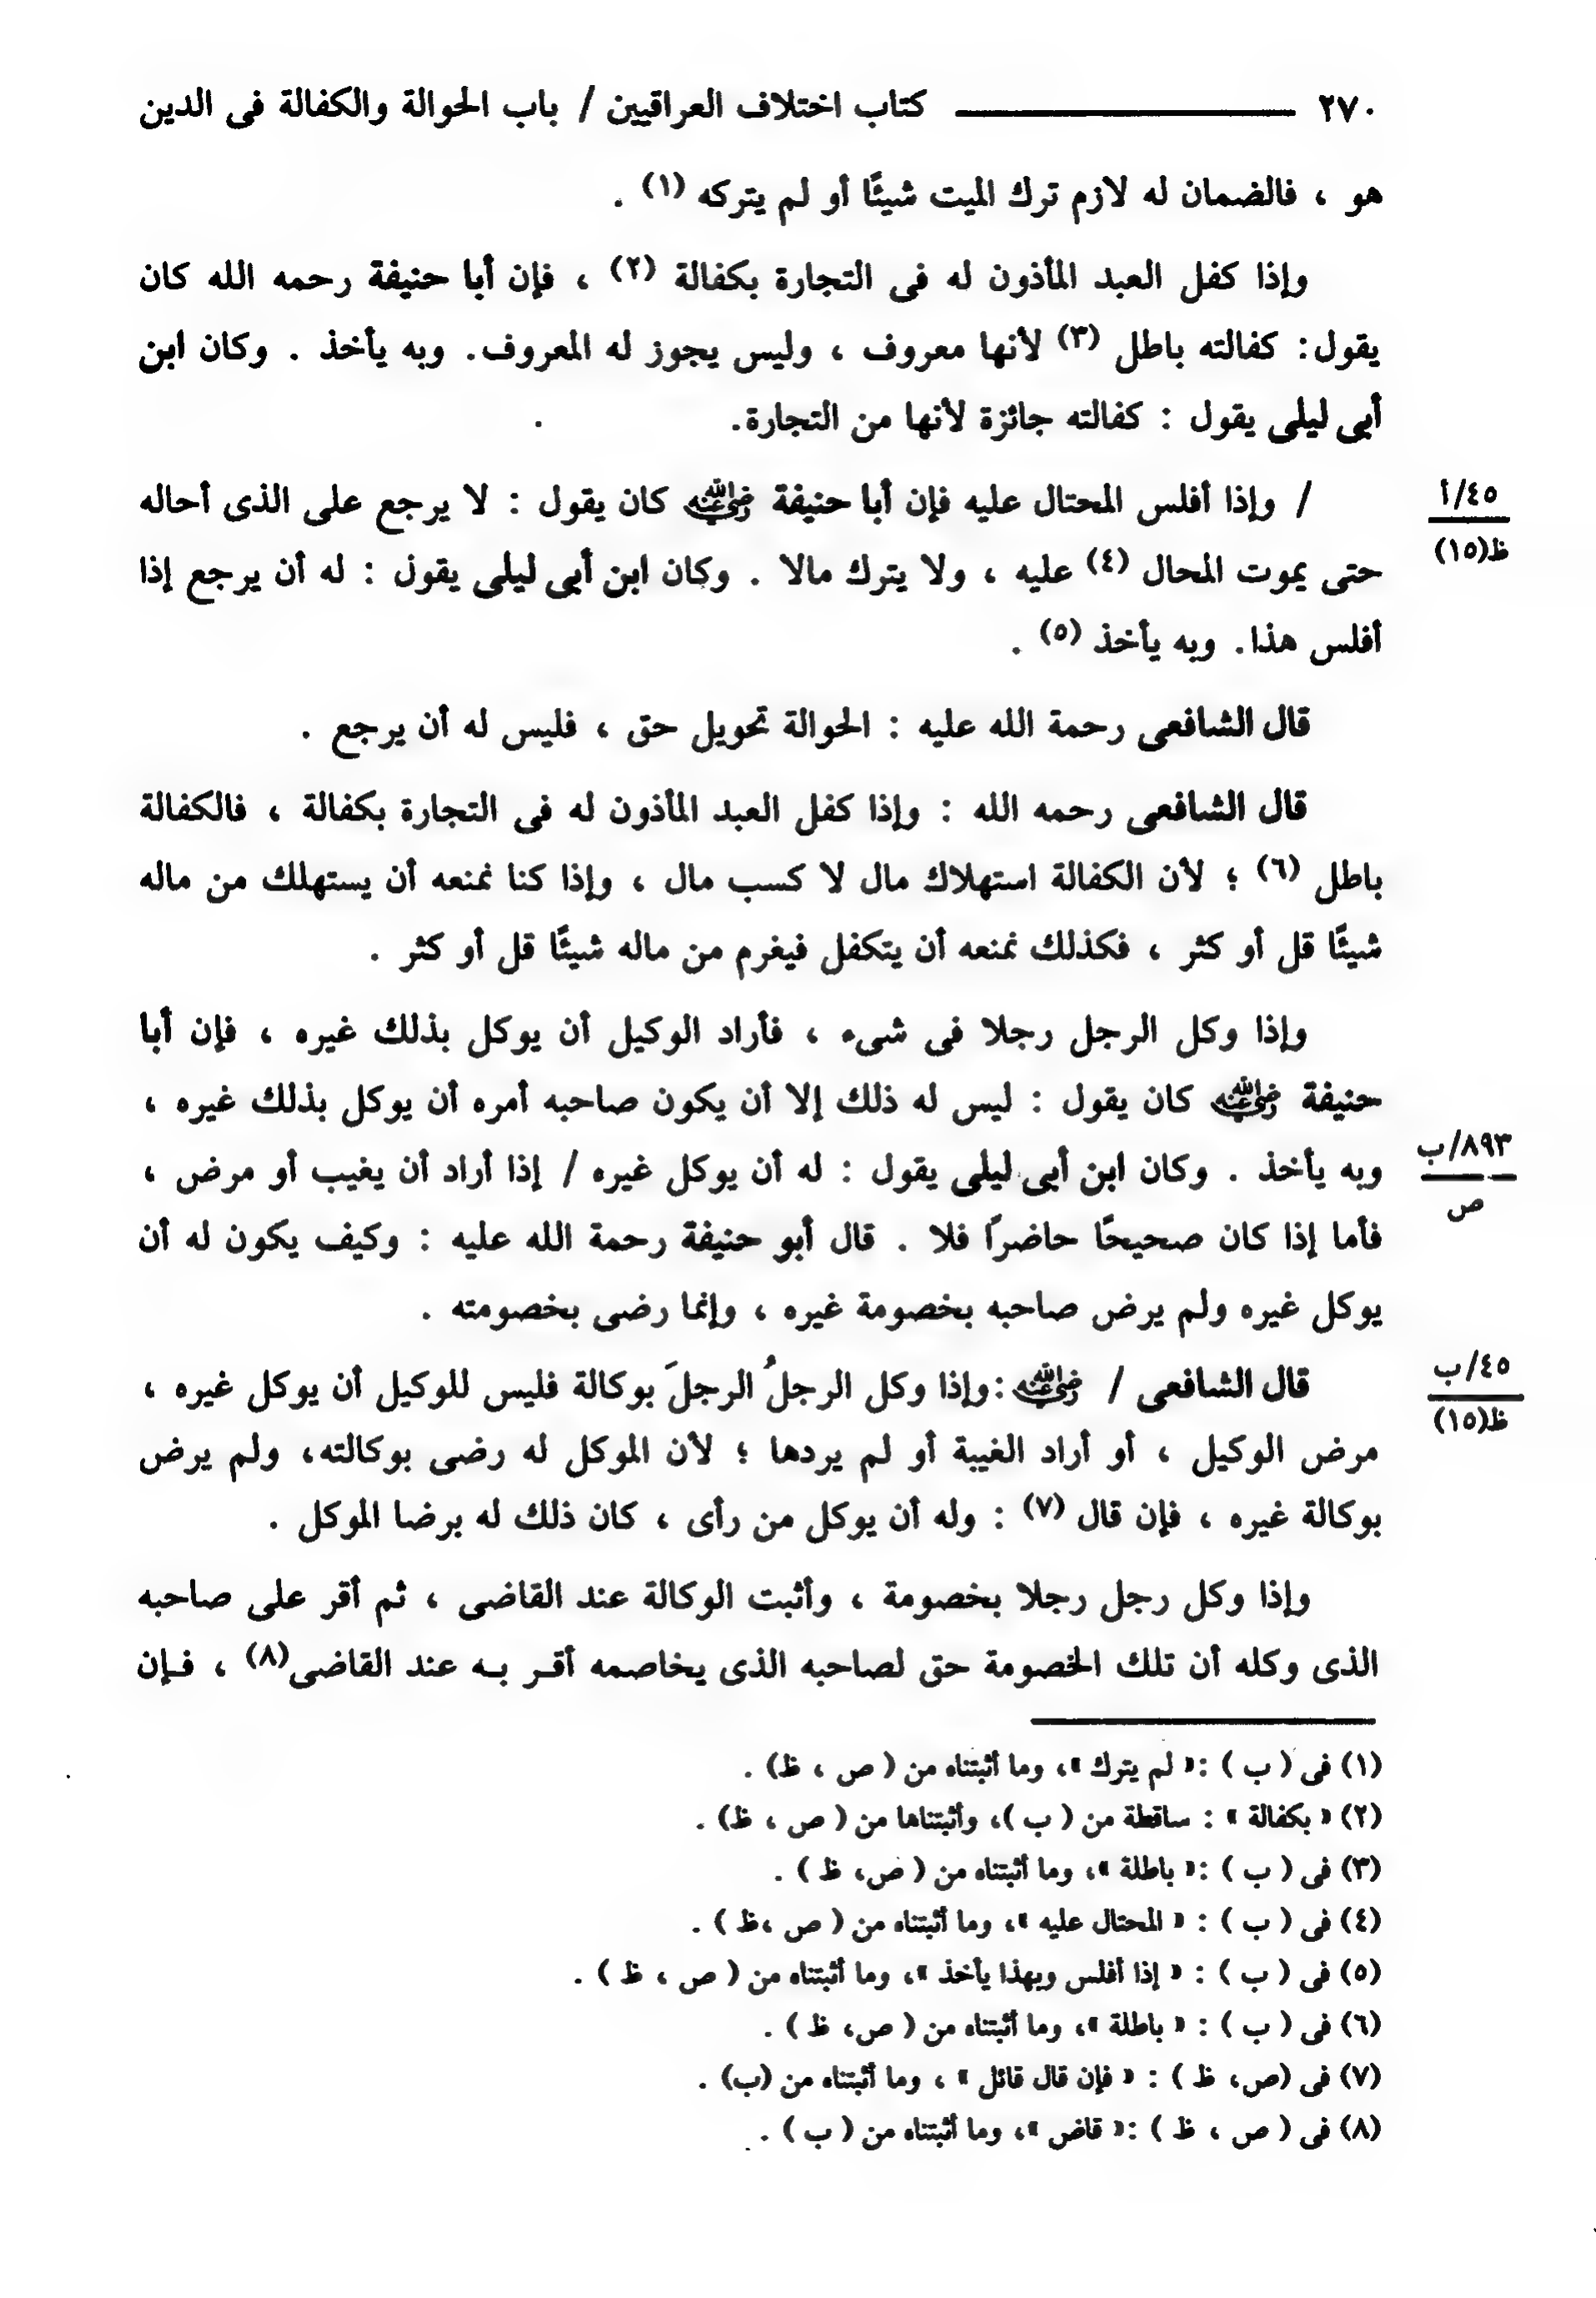 ٢٧٠ كتاب اختلاف العراقيين / باب الحوالة والكفالة فى الدين
هو ، فالضمان له لازم ترك الميت شيئًا أو لم يتركه (١) .
وإذا كفل العبد المأذون له فى التجارة بكفالة (٢) ، فإن أبا حنيفة رحمه الله كان
يقول: كفالته باطل (٣) لأنها معروف ، وليس يجوز له المعروف. وبه يأخذ . وكان ابن
أبى ليلى يقول : كفالته جائزة لأنها من التجارة.
/ وإذا أفلس المحتال عليه فإن أبا حنيفة رضي الله عنه كان يقول : لا يرجع على الذى أحاله
٤٥/أ
ظ(١٥)
حتى يموت المحال (٤) عليه ، ولا يترك مالا . وكان ابن أبى ليلى يقول : له أن يرجع إذا
أفلس هذا. وبه يأخذ (٥) .
قال الشافعى رحمة الله عليه : الحوالة تحويل حق ، فليس له أن يرجع .
قال الشافعى رحمه الله : وإذا كفل العبد المأذون له فى التجارة بكفالة ، فالكفالة
باطل (٦) ؛ لأن الكفالة استهلاك مال لا كسب مال ، وإذا كنا نمنعه أن يستهلك من ماله
شيئًا قل أو كثر ، فكذلك نمنعه أن يتكفل فيغرم من ماله شيئًا قل أو كثر .
وإذا وكل الرجل رجلا فى شىء ، فأراد الوكيل أن يوكل بذلك غيره ، فإن أبا
حنيفة رضي الله عنه كان يقول : ليس له ذلك إلا أن يكون صاحبه أمره أن يوكل بذلك غيره ،
وبه يأخذ . وكان ابن أبى ليلى يقول : له أن يوكل غيره / إذا أراد أن يغيب أو مرض ،
٨٩٣/ب
ص
فأما إذا كان صحيحًا حاضرًا فلا . قال أبو حنيفة رحمة الله عليه : وكيف يكون له أن
يوكل غيره ولم يرض صاحبه بخصومة غيره ، وإنما رضى بخصومته .
قال الشافعى / رضي الله عنه :وإذا وكل الرجلُ الرجلَ بوكالة فليس للوكيل أن يوكل غيره ،
٤٥/ب
ظ(١٥)
مرض الوكيل ، أو أراد الغيبة أو لم يردها ؛ لأن الموكل له رضى بوكالته، ولم يرض
بوكالة غيره ، فإن قال (٧) : وله أن يوكل من رأى ، كان ذلك له برضا الموكل .
وإذا وكل رجل رجلا بخصومة ، وأثبت الوكالة عند القاضى ، ثم أقر على صاحبه
الذى وكله أن تلك الخصومة حق لصاحبه الذى يخاصمه أقر به عند القاضى(٨) ، فإن
(١) فى ( ب ) :« لم يترك »، وما أثبتناه من ( ص ، ظ) .
(٢) « بكفالة » : ساقطة من ( ب )، وأثبتناها من ( ص ، ظ) .
(٣) فى ( ب ) :« باطلة »، وما أثبتناه من ( ص، ظ ) .
(٤) فى ( ب ) : « المحتال عليه »، وما أثبتناه من ( ص ،ظ ) .
(٥) فى ( ب ) : « إذا أفلس وبهذا يأخذ »، وما أثبتناه من ( ص ، ظ ) .
(٦) فى ( ب ) : « باطلة »، وما أثبتناه من ( ص، ظ ) .
(٧) فى (ص، ظ ) : « فإن قال قائل » ، وما أثبتناه من (ب) .
(٨) فى ( ص ، ظ ) :« قاض »، وما أثبتناه من ( ب ) .